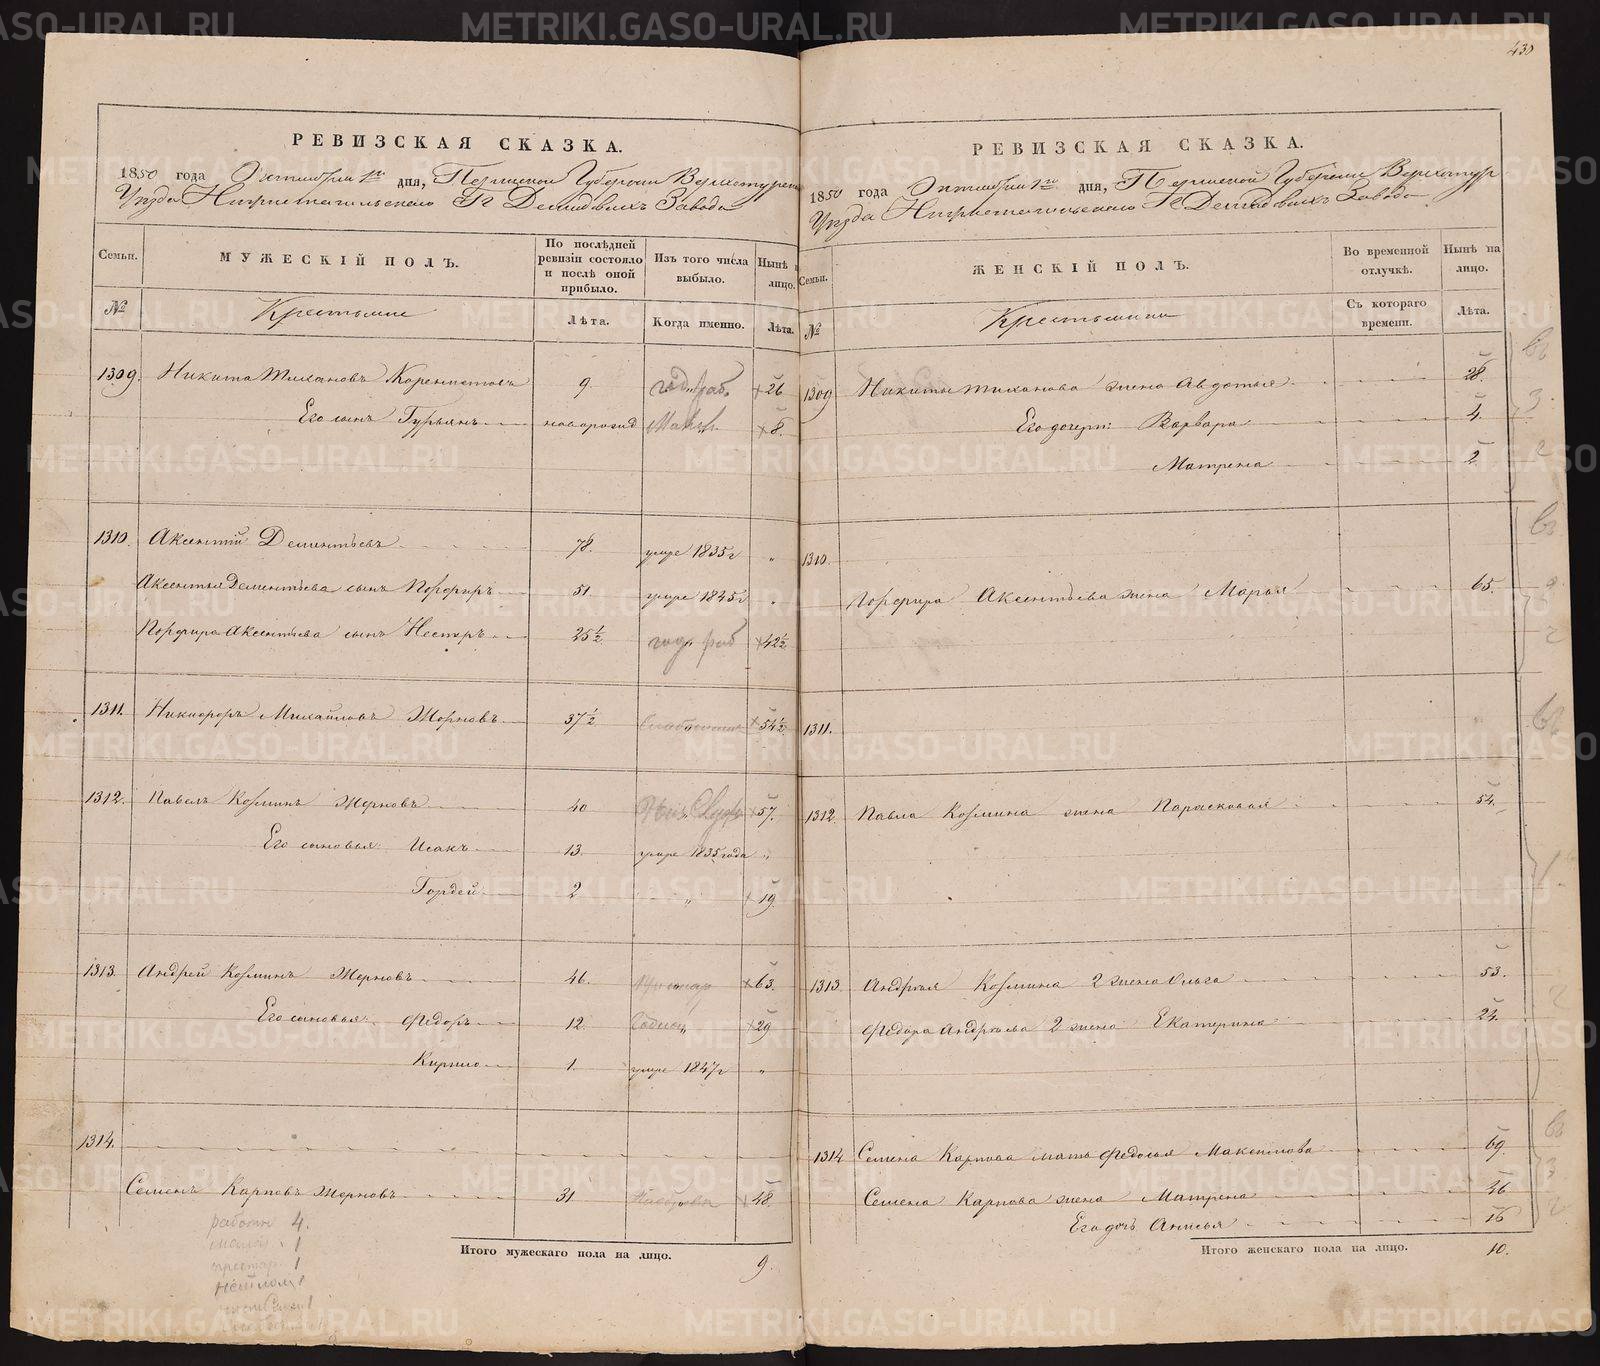 430
РЕВИЗСКАЯ СКАЗКА.
1850 года Октября 1го дня, Пермской Губернии Верхотурскаго
Уѣзда Нижнетагильскаго Гг Демидовыхъ Завода
Семьи. МУЖЕСКІЙ ПОЛЪ. По послѣдней ревизіи состояло и послѣ оной прибыло. Изъ того числа выбыло. Нынѣ на лицо.
№ Крестьяне Лѣта. Когда именно. Лѣта.
1309. Никита Тихановъ 9. год. раб. 26
Его сынъ Гурьянъ новорожд 8.
1310. Аксентій Дементьевъ 78. умре 1835г "
Аксентья Дементьева сынъ Порфиръ 51 умре 1845г "
Порфира Аксентьева сынъ Несторъ 25 1/2 год. раб 42 1/2
1311. Никифоръ Михайловъ Жерновъ 37 1/2 54 1/2
1312. Павелъ Козминъ Жерновъ 40 57.
Его сыновья: Исакъ 13. умре 1835 года "
Гордей 2 " 19.
1313. Андрей Козминъ Жерновъ 46. 63.
Его сыновья: Федоръ 12. годной 29
Кирило 1. умре 1847г "
1314.
Семенъ Карповъ Жерновъ 31 48.
Итого мужескаго пола на лицо. 9.
работн 4.
1
1
1
РЕВИЗСКАЯ СКАЗКА.
1850 года Октября 1го дня, Пермской Губерніи Верхотур
Уѣзда Нижнетагильскаго Гг Демидовыхъ Завода
Семьи. ЖЕНСКІЙ ПОЛЪ. Во временной отлучкѣ. Нынѣ на лицо.
№ Крестьянки Съ котораго времени. Лѣта.
1309 Никиты Тиханова жена Авдотья 28.
Его дочери: Варвара 4.
Матрена 2.
1310.
Порфира Аксентьева жена Марья 65.
1311.
1312. Павла Козмина жена Парасковья 54.
1313. Андрея Козмина 2 жена Ольга 53.
Федора Андреева 2 жена Екатерина 24.
1314 Семена Карпова мать Федосья Максимова 69.
Семена Карпова жена Матрена 46
Его дочь Анисья 16
Итого женскаго пола на лицо. 10.
METRIKI.GASO-URAL.RU